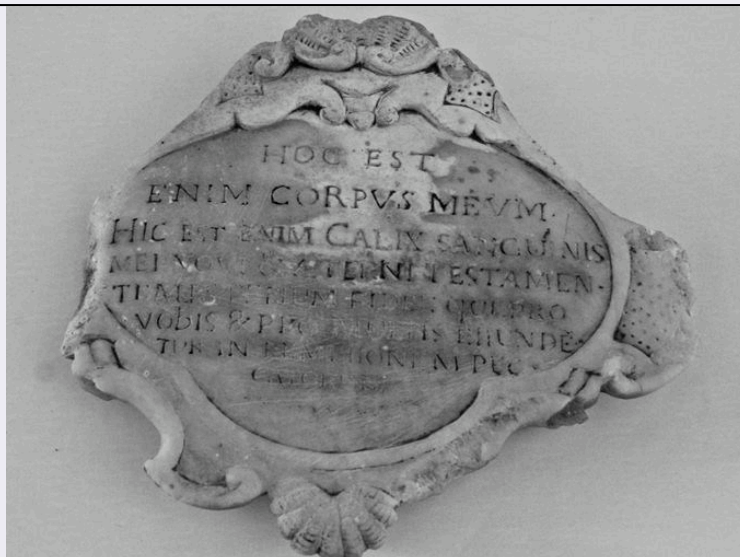 HOC EST
ENIM CORPVS MEVM.
HIC EST ENIM CALIX SANGUINIS
MEI NOVI & ÆTERNI TESTAMEN-
TI MISTERIUM FIDEI: QUI PRO
VOBIS & PRO MULTIS EFFUNDE-
TUR IN REMISSIONEM PEC-